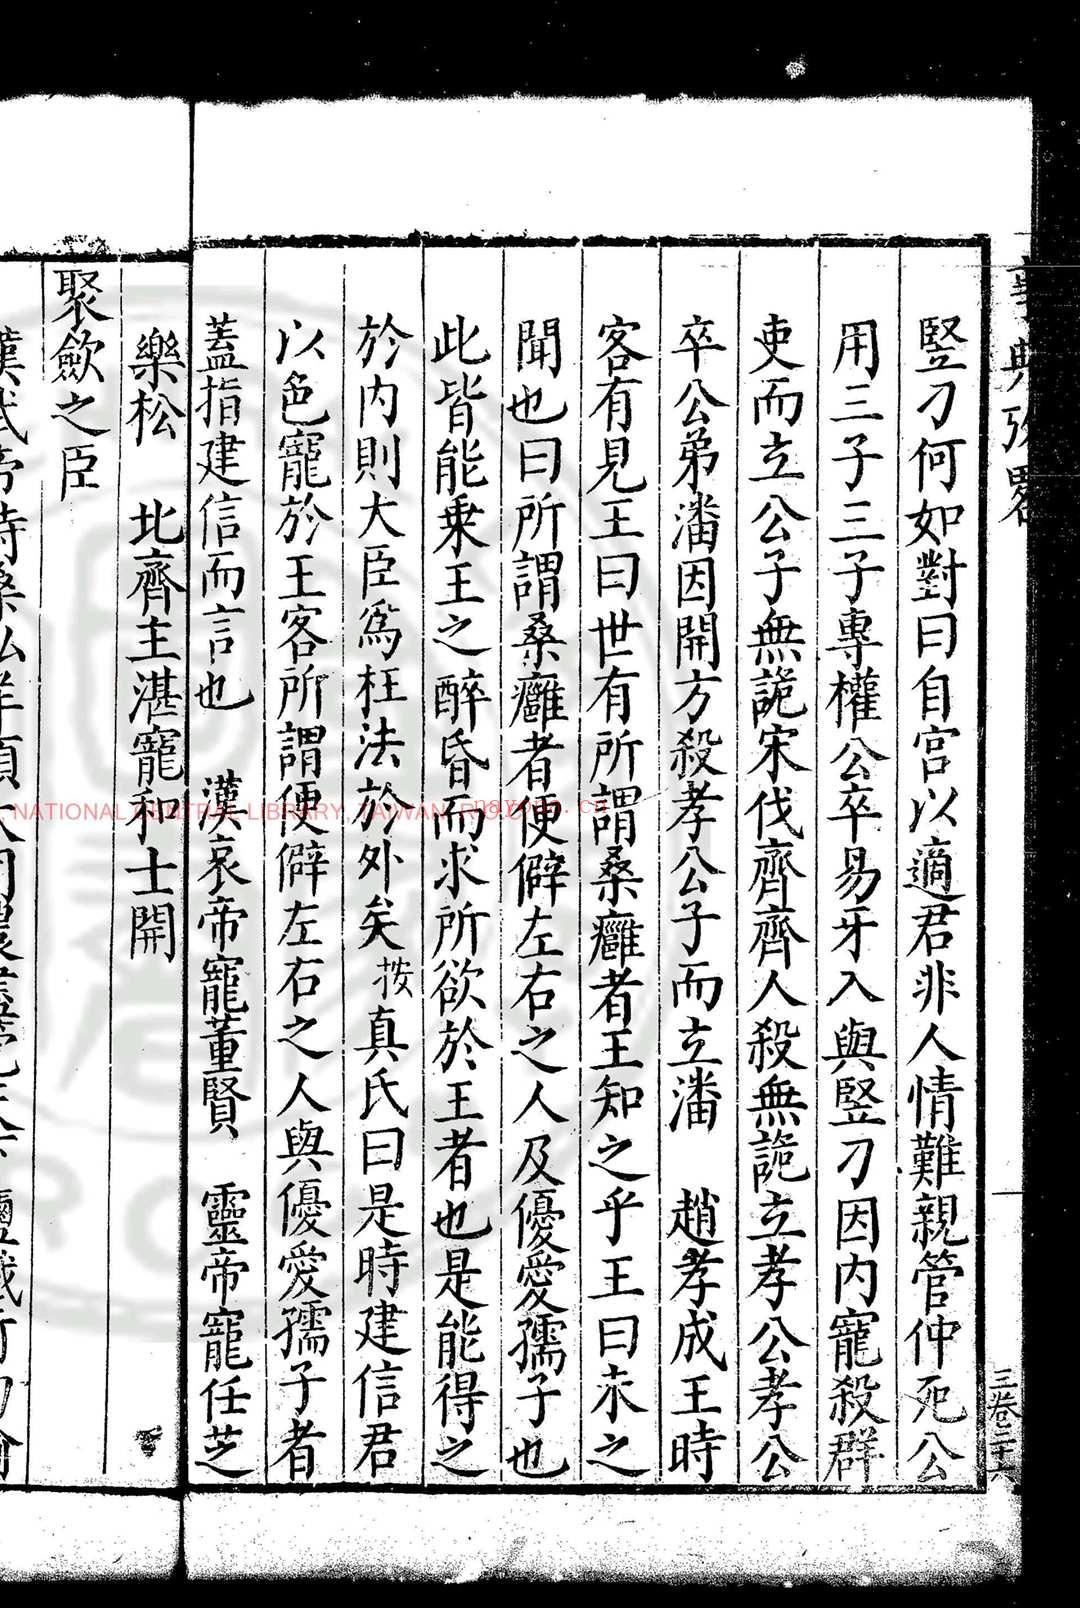 豎刁何如對曰自宮以適君非人情難親管仲死公
用三子三子專權公卒易牙入與豎刁因内寵殺群
吏而立公子無詭宋伐齊齊人殺無詭立孝公孝公
卒公弟潘因開方殺孝公子而立潘　趙孝成王時
客有見王曰世有所謂桑癰者王知之乎王曰未之
聞也曰所謂桑癰者便僻左右之人及優愛孺子也
此皆能乗王之醉昏而求所欲於王者也是能得之
於内則大臣為枉法於外矣按真氏曰是時建信君
以色寵於王客所謂便僻左右之人與優愛孺子者
蓋指建信而言也　漢哀帝寵董賢　靈帝寵任芝
樂松　北齊主湛寵和士開
聚歛之臣
三卷二十六
NATIONAL CENTRAL LIBRARY, TAIWAN, R.O.C